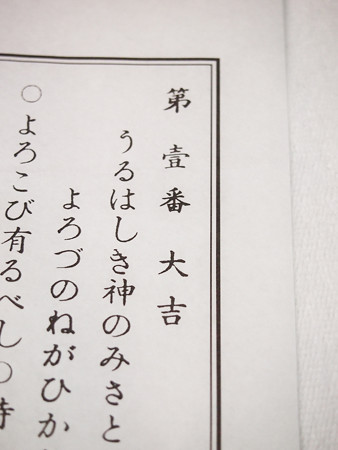 第壹番 大吉
うるはしき神のみさと
よろづのねがひか
○よろこび有るべし○待